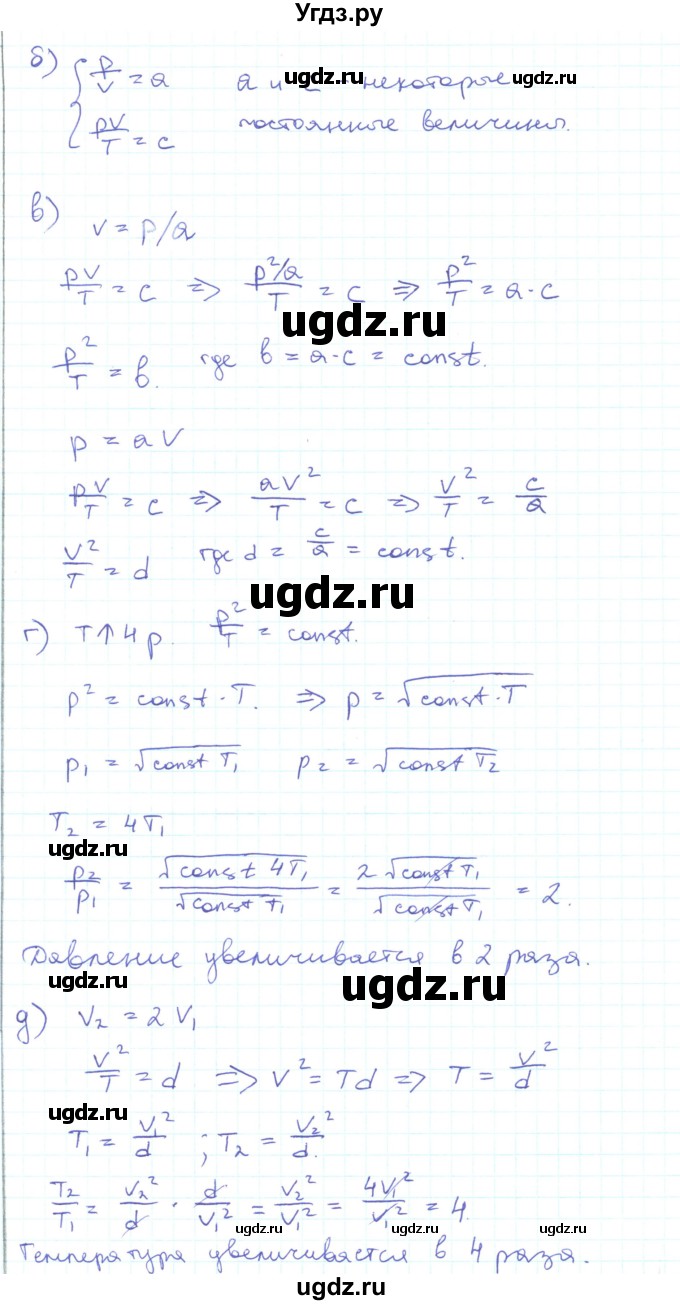 Угдз.ру
б) { p/V = a     a и c - некоторые
{ pV/T = c     постоянные величины.
в)     V = p/a
pV/T = c ⇒ (p²/a)/T = c ⇒ p²/T = a·c
ugdz.ru
p²/T = b. где b = a·c = const.
p = aV
pV/T = c ⇒ aV²/T = c ⇒ V²/T = c/a
V²/T = d где d = c/a = const.
ugdz.ru
г) T↑4 р. p²/T = const.
p² = const·T. ⇒ p = √(const·T)
p₁ = √(const T₁)     p₂ = √(const T₂)
T₂ = 4T₁
ugdz.ru
p₂/p₁ = √(const 4T₁)/√(const T₁) = 2√(const T₁)/√(const T₁) = 2.
Давление увеличивается в 2 раза.
ugdz.ru
д) V₂ = 2V₁
V²/T = d ⇒ V² = Td ⇒ T = V²/d
ugdz.ru
T₁ = V₁²/d ; T₂ = V₂²/d.
T₂/T₁ = V₂²/d · d/V₁² = V₂²/V₁² = 4V₁²/V₁² = 4.
ugdz.ru ugdz.ru ugdz.ru
Температура увеличивается в 4 раза.
ugdz.ru